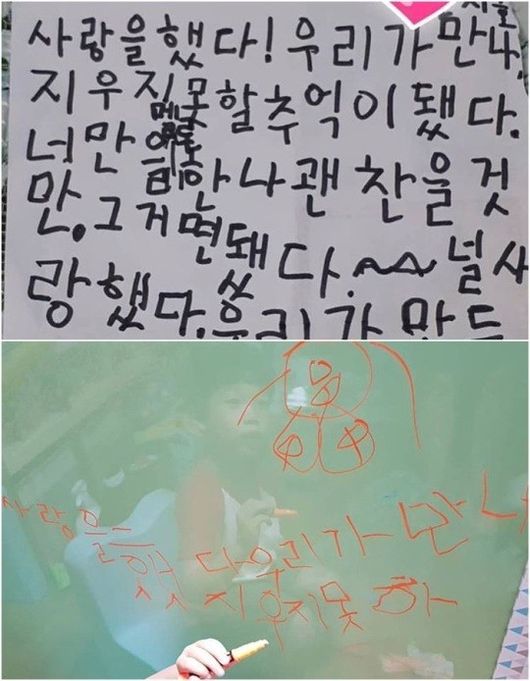 지호
사랑을했다! 우리가만나,
지우지못할추억이됐다.
메롱
너만
만나괜찬을것
만.그거면됐다.~~널사
랑했다.우리가만드
사랑을했다우리가만나
지우지못하